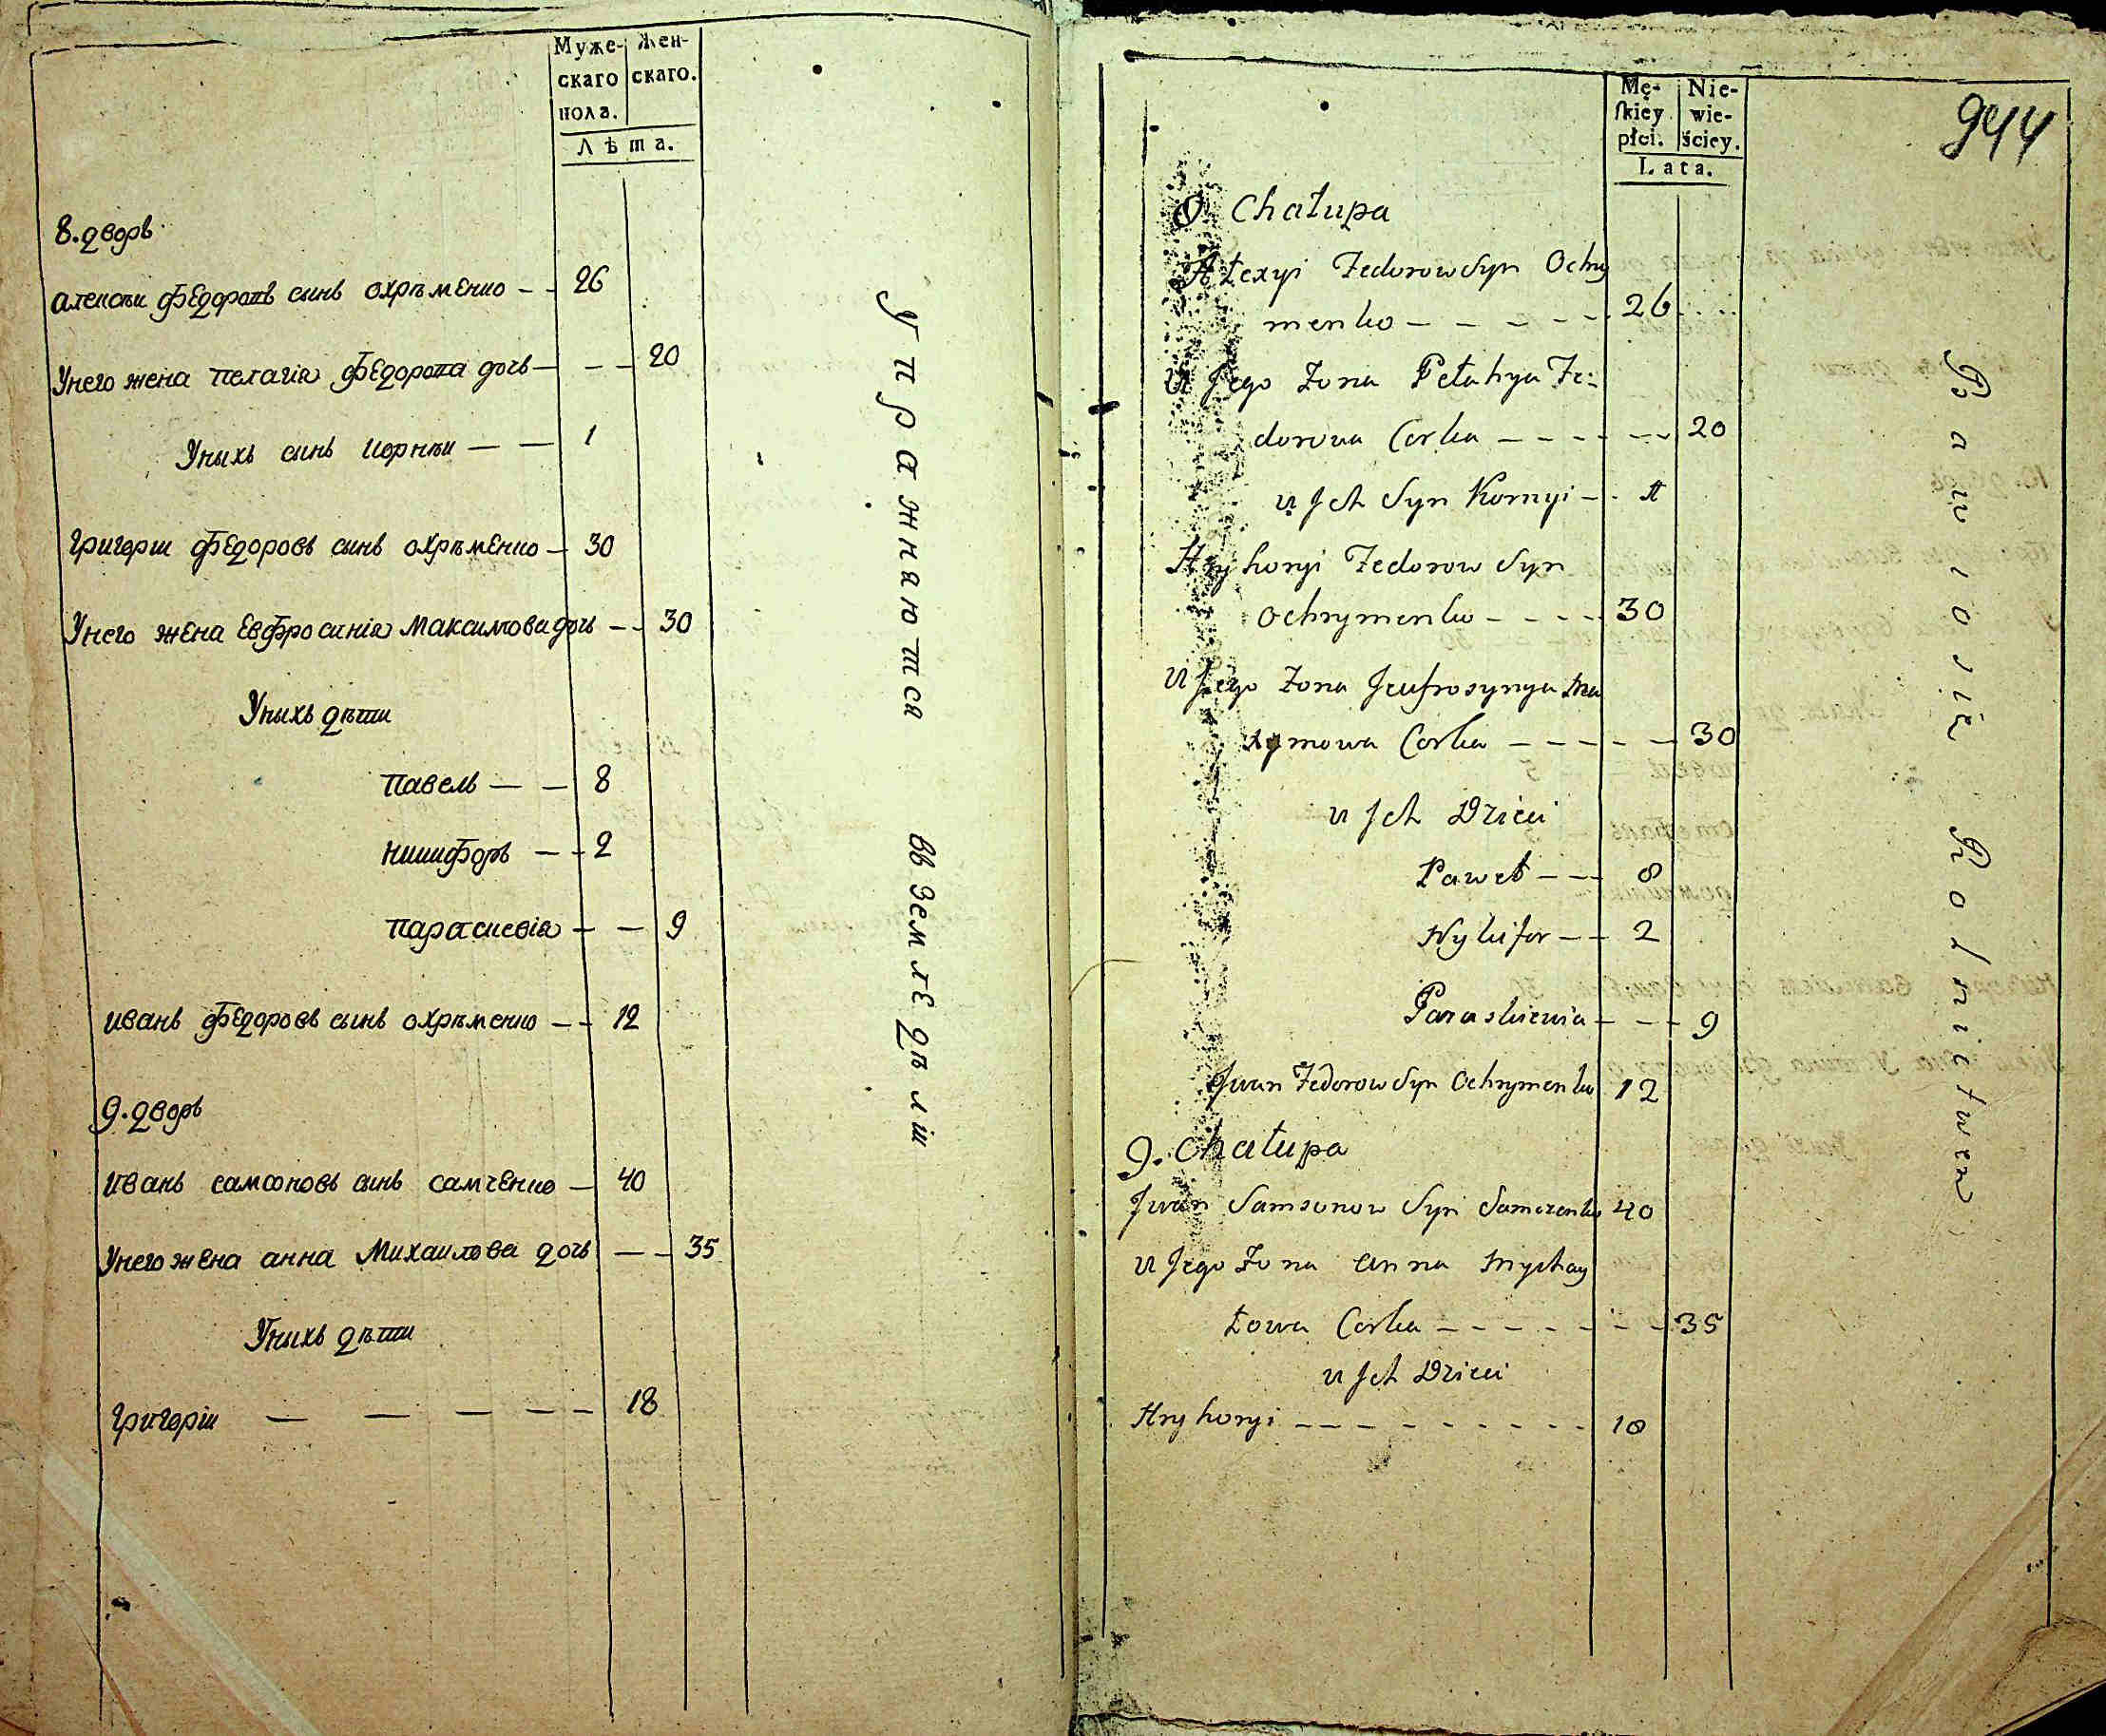 Муже-
скаго
пола.
Жен-
скаго.
Лѣта.
8. дворъ
алексѣи Федоровъ сынъ охрѣменко — — 26
Унего жена пелагіа Федорова дочь — — — 20
Унихъ сынъ корнѣи — — 1
григории Федоровъ сынъ охрѣменко — 30
Унего жена Евфросиніа Максимова дочь — — 30
Унихъ дѣти
павелъ — — 8
никифоръ — — 2
параскевіа — — 9
иванъ Федоровъ сынъ охрѣменко — — 12
9. дворъ
иванъ самсоновъ сынъ самченко — 40
Унего жена анна Михаилова дочь — — 35
Унихъ дѣти
григоріи — — — — — — 18
Упражнаютса въ Земледѣліи
Mę-
skiey
płci.
Nie-
wie-
ściey.
Lata.
944
8. Chałupa
Ałexyi Fedorow Syn Ochry
menko — — — — — 26
u Jego Żona Pełahya Fe:
dorowa Corka — — — — — — 20
u Ich Syn Kornyi — 1
Hryhoryi Fedorow Syn
Ochrymenko — — — — 30
u Jego Żona Jeufrosynya Ma
xymowa Corka — — — — — 30
u Ich Dzieci
Paweł — — — 8
Nykifor — — 2
Paraskiewia — — — 9
Iwan Fedorow Syn Ochrymenko 12
9. Chałupa
Iwan Samsonow Syn Samczenko 40
u Jego Żona Anna Mychay
łowa Corka — — — — — — — 35
u Ich Dzieci
Hryhoryi — — — — — — — — — 18
Bawią się Rolnictwem